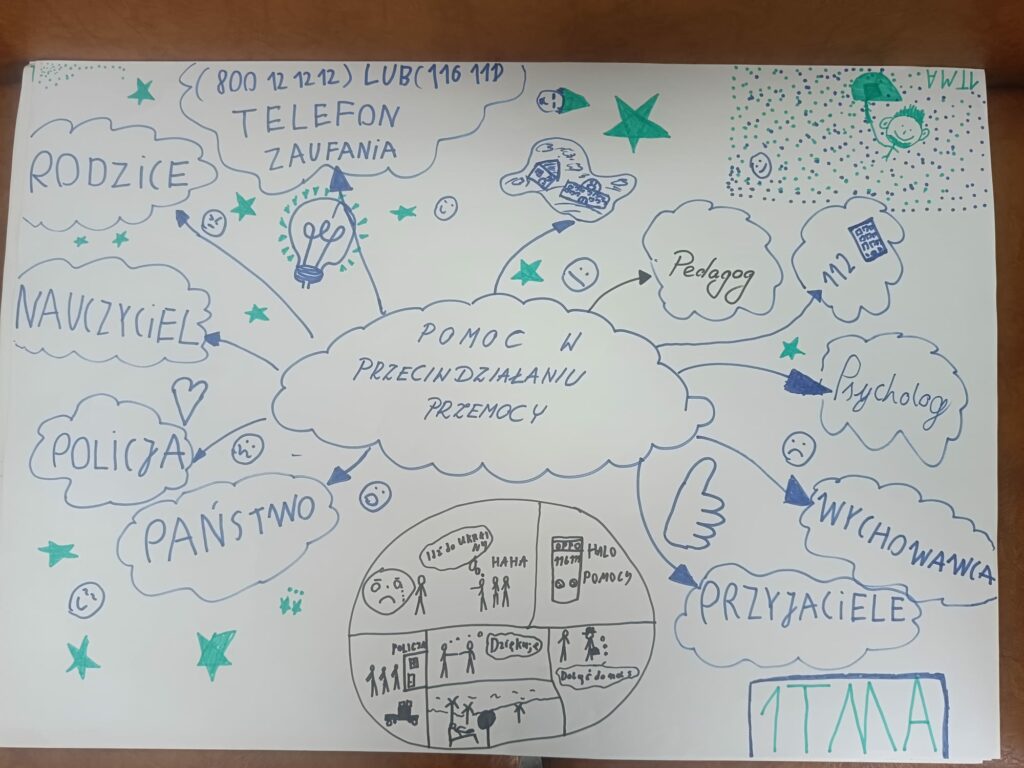 (800 12 12 12) LUB (116 111)
TELEFON
ZAUFANIA
1TMA
RODZICE
NAUCZYCIEL
POLICJA
PAŃSTWO
POMOC W
PRZECINDZIAŁANIU
PRZEMOCY
Pedagog
112
Psycholog
WYCHOWAWCA
PRZYJACIELE
Idź do UKRAI
NY
HAHA
OPPO
116111
HALO
POMOCY
POLICJA
Dziękuję
1TMA